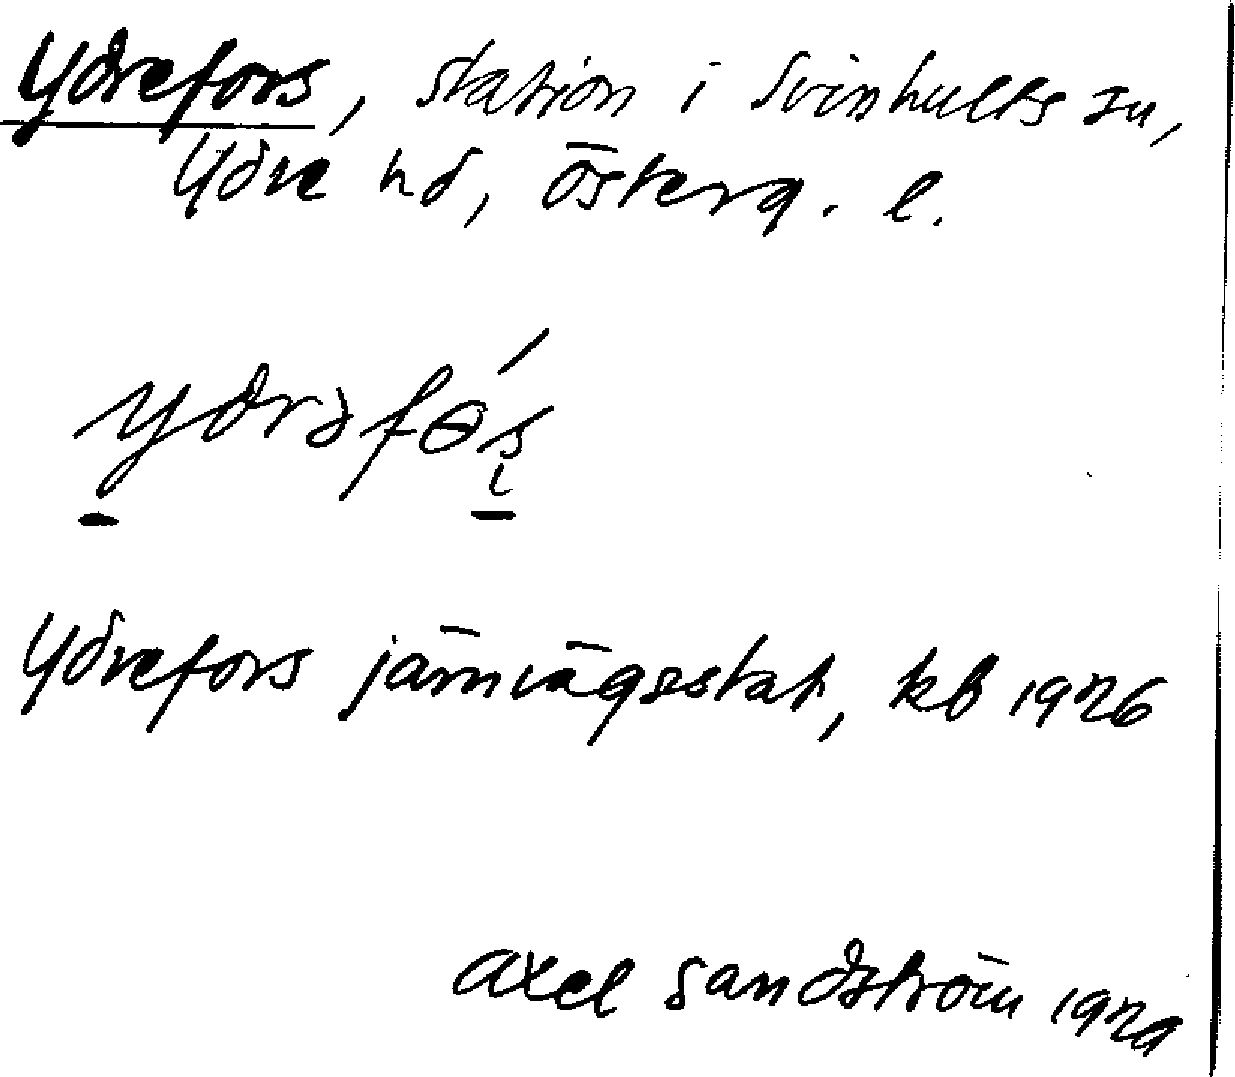 Ydrefors, station i Svinhults sn,
Ydre hd, Österg. l.
ydrəfɵ́ʂ
Ydrefors järnvägsstat, kb 1926
Axel Sandström 1929